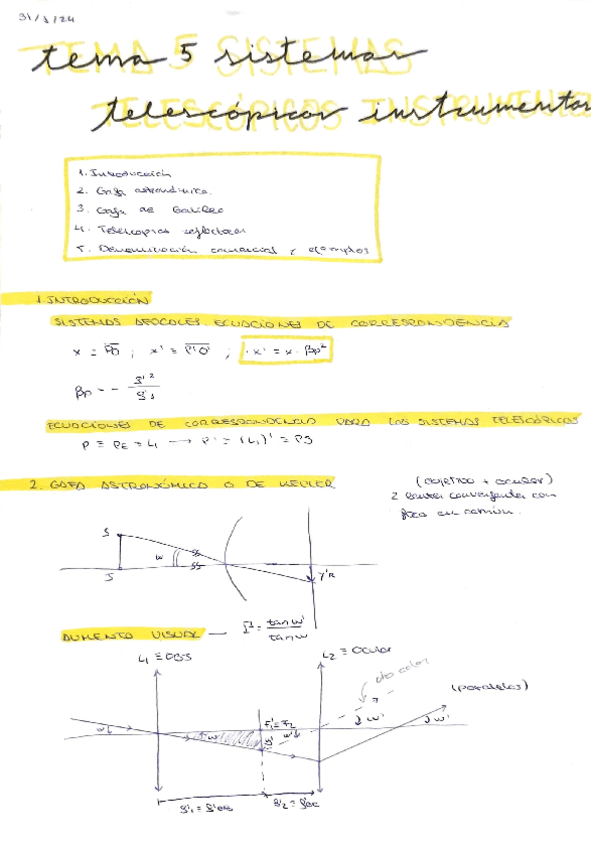 31/1/24
tema 5 sistemas
telescópicos instrumentos
1. Introducción
2. Gafa astronómica.
3. Gafa de Galileo
4. Telescopios reflectores
5. Denominación comercial y ejemplos
1. INTRODUCCIÓN
SISTEMAS AFOCALES. ECUACIONES DE CORRESPONDENCIA
x = PO ; x' = P'O' ; x' = x · βp²
βp = - f'2 / f'1
ECUACIONES DE CORRESPONDENCIA PARA LOS SISTEMAS TELESCÓPICOS
P ≡ PE = L1 → P' = (L1)' = PS
2. GAFA ASTRONÓMICA O DE KEPLER
(objetivo + ocular)
2 lentes convergentes con
foco en común.
w
y'R
AUMENTO VISUAL — Γ = tan w' / tan w
L1 ≡ OBJ
L2 ≡ Ocular
(paralelos)
F'1 = F2
w
w
w'
w'
w'
y'
f'1 = f'OB
f'2 = f'OC